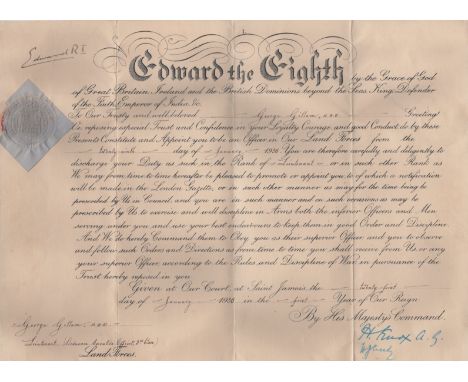 Edward R.I.
Edward the Eighth by the Grace of God
of Great Britain, Ireland and the British Dominions beyond the Seas, King, Defender
of the Faith, Emperor of India, &c.
To Our Trusty and well beloved George Gillam, Greeting!
We, reposing especial Trust and Confidence in your Loyalty, Courage, and good Conduct, do by these
Presents Constitute and Appoint you to be an Officer in Our Land Forces from the
day of January 1936 You are therefore carefully and diligently to
discharge your Duty as such in the Rank of Lieutenant or in such other Rank as
We may from time to time hereafter be pleased to promote or appoint you to, of which a notification
will be made in the London Gazette, or in such other manner as may for the time being be
prescribed by Us in Council, and you are in such manner and on such occasions as may be
prescribed by Us to exercise and well discipline in Arms both the inferior Officers and Men
serving under you and use your best endeavours to keep them in good Order and Discipline.
And We do hereby Command them to Obey you as their superior Officer and you to observe
and follow such Orders and Directions as from time to time you shall receive from Us, or any
your superior Officer, according to the Rules and Discipline of War, in pursuance of the
Trust hereby reposed in you.
Given at Our Court, at Saint James's, the twenty-first
day of January 1936 in the first Year of Our Reign
By His Majesty's Command.
George Gillam
Lieutenant
Land Forces.
H. Knox A.G.